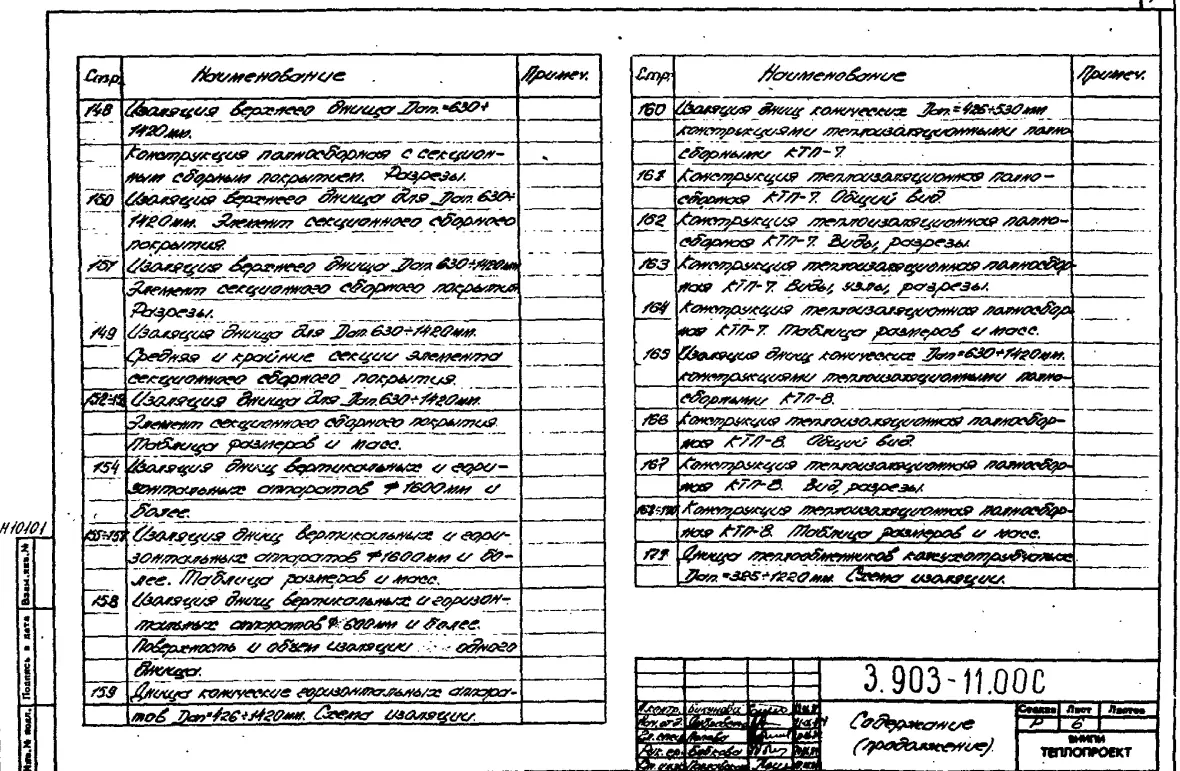 Стр. Наименование Примеч.
148 Изоляция верхнего днища Dап.=630÷
1420мм.
Конструкция полносборная с секцион-
ным сборным покрытием. Разрезы.
150 Изоляция верхнего днища для Dап. 630÷
1420мм. Элемент секционного сборного
покрытия.
151 Изоляция верхнего днища Dап. 630÷1420мм
Элемент секционного сборного покрытия
Разрезы.
149 Изоляция днища для Dап. 630÷1420мм.
Средняя и крайние секции элемента
секционного сборного покрытия.
Изоляция днища для Dап. 630÷1420мм.
Элемент секционного сборного покрытия.
Таблица размеров и масс.
154 Изоляция днищ вертикальных и гори-
зонтальных аппаратов φ 1600мм и
более.
Изоляция днищ вертикальных и гори-
зонтальных аппаратов φ1600мм и бо-
лее. Таблица размеров и масс.
158 Изоляция днищ вертикальных и горизон-
тальных аппаратов и более.
Поверхность и объем изоляции одного
днища.
159 Днища конические горизонтальных аппара-
тов Dап=426÷1420мм. Схема изоляции.
Стр. Наименование Примеч.
160 Изоляция днищ конических Dап.=426÷530мм
конструкциями теплоизоляционными полно-
сборными КТП-7.
161 Конструкция теплоизоляционная полно-
сборная КТП-7. Общий вид.
162 Конструкция теплоизоляционная полно-
сборная КТП-7. Виды, разрезы.
163 Конструкция теплоизоляционная полносбор-
ная КТП-7. Виды, узлы, разрезы.
164 Конструкция теплоизоляционная полносбор-
ная КТП-7. Таблица размеров и масс.
165 Изоляция днищ конических Dап=630÷1420мм.
конструкциями теплоизоляционными полно-
сборными КТП-8.
166 Конструкция теплоизоляционная полносбор-
ная КТП-8. Общий вид.
167 Конструкция теплоизоляционная полносбор-
ная КТП-8. Вид, разрезы.
Конструкция теплоизоляционная полносбор-
ная КТП-8. Таблица размеров и масс.
171 Днища теплообменников кожухотрубчатых
Dап.=325÷1220мм. Схема изоляции.
Н10101
Взам.инв.№
Подпись и дата
Инв.№ подл.
3.903-11.00С
Содержание
(продолжение).
Стадия Лист Листов
Р 6
ВНИПИ
ТЕПЛОПРОЕКТ